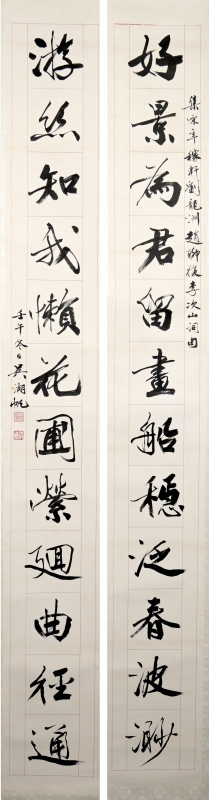 好景為君留畫船穩泛春波渺
集宋辛稼軒劉龍洲趙聊復李次山詞句
游絲知我懶花圃縈迴曲徑通
壬午冬日吳湖帆